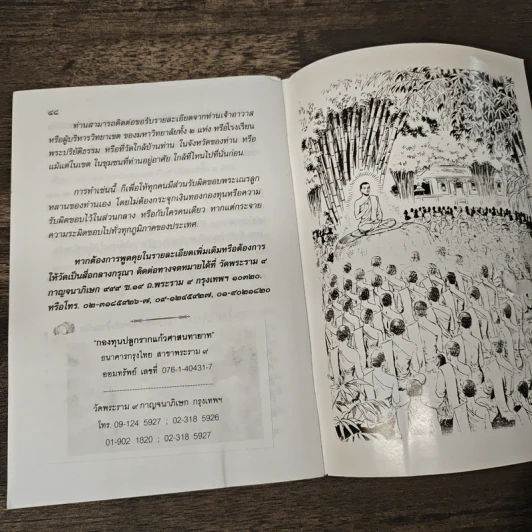 ๔๘
ท่านสามารถติดต่อขอรับรายละเอียดจากท่านเจ้าอาวาส
หรือผู้บริหารวิทยาเขต ของมหาวิทยาลัยทั้ง ๒ แห่ง หรือโรงเรียน
พระปริยัติธรรม หรือที่วัดใกล้บ้านท่าน ในจังหวัดของท่าน หรือ
แม้แต่ในเขต ในชุมชนที่ท่านอยู่อาศัย ใกล้ที่ไหนไปที่นั่นก่อน.
การทำเช่นนี้ ก็เพื่อให้ทุกคนมีส่วนรับผิดชอบพระเณรลูก
หลานของท่านเอง โดยไม่ต้องกระจุกเงินทองกองทุนหรือความ
รับผิดชอบไว้ในส่วนกลาง หรือกับใครคนเดียว หากแต่กระจาย
ความระผิดชอบไปทั่วทุกภูมิภาคของประเทศ.
หากต้องการพูดคุยในรายละเอียดเพิ่มเติมหรือต้องการ
ให้วัดเป็นสื่อกลางกรุณา ติดต่อทางจดหมายได้ที่ วัดพระราม ๙
กาญจนาภิเษก ๙๙๙ ซ.๑๙ ถ.พระราม ๙ กรุงเทพฯ ๑๐๓๒๐.
หรือโทร. ๐๒-๓๑๘๕๙๒๖-๗, ๐๙-๑๒๔๕๙๒๗, ๐๑-๙๐๒๑๘๒๐
"กองทุนปลูกรากแก้วศาสนทายาท"
ธนาคารกรุงไทย สาขาพระราม ๙
ออมทรัพย์ เลขที่ 076-1-40431-7
วัดพระราม ๙ กาญจนาภิเษก กรุงเทพฯ
โทร. 09-124 5927 ; 02-318 5926
01-902 1820 ; 02-318 5927